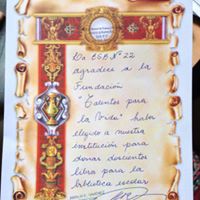 La EGB Nº 22
agradece a la
Fundación
"Talentos para
la Vida" haber
elegido a nuestra
institución para
donar doscientos
libros para la
biblioteca escolar.